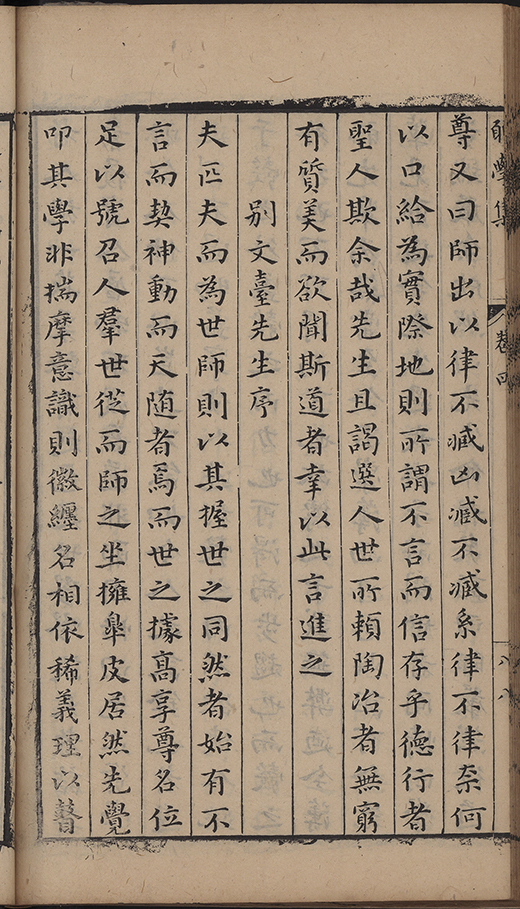 學集 卷四
尊又曰師出以律不臧凶臧不臧系律不律柰何
以口給為實際地則所謂不言而信存乎德行者
聖人欺余哉先生且謁選人世所賴陶冶者無窮
有質美而欲聞斯道者幸以此言進之
別文臺先生序
夫匹夫而為世師則以其握世之同然者始有不
言而契神動而天随者焉而世之據高享尊名位
足以號召人羣世從而師之坐擁皐皮居然先覺
叩其學非揣摩意識則徽纏名相依稀義理以瞽